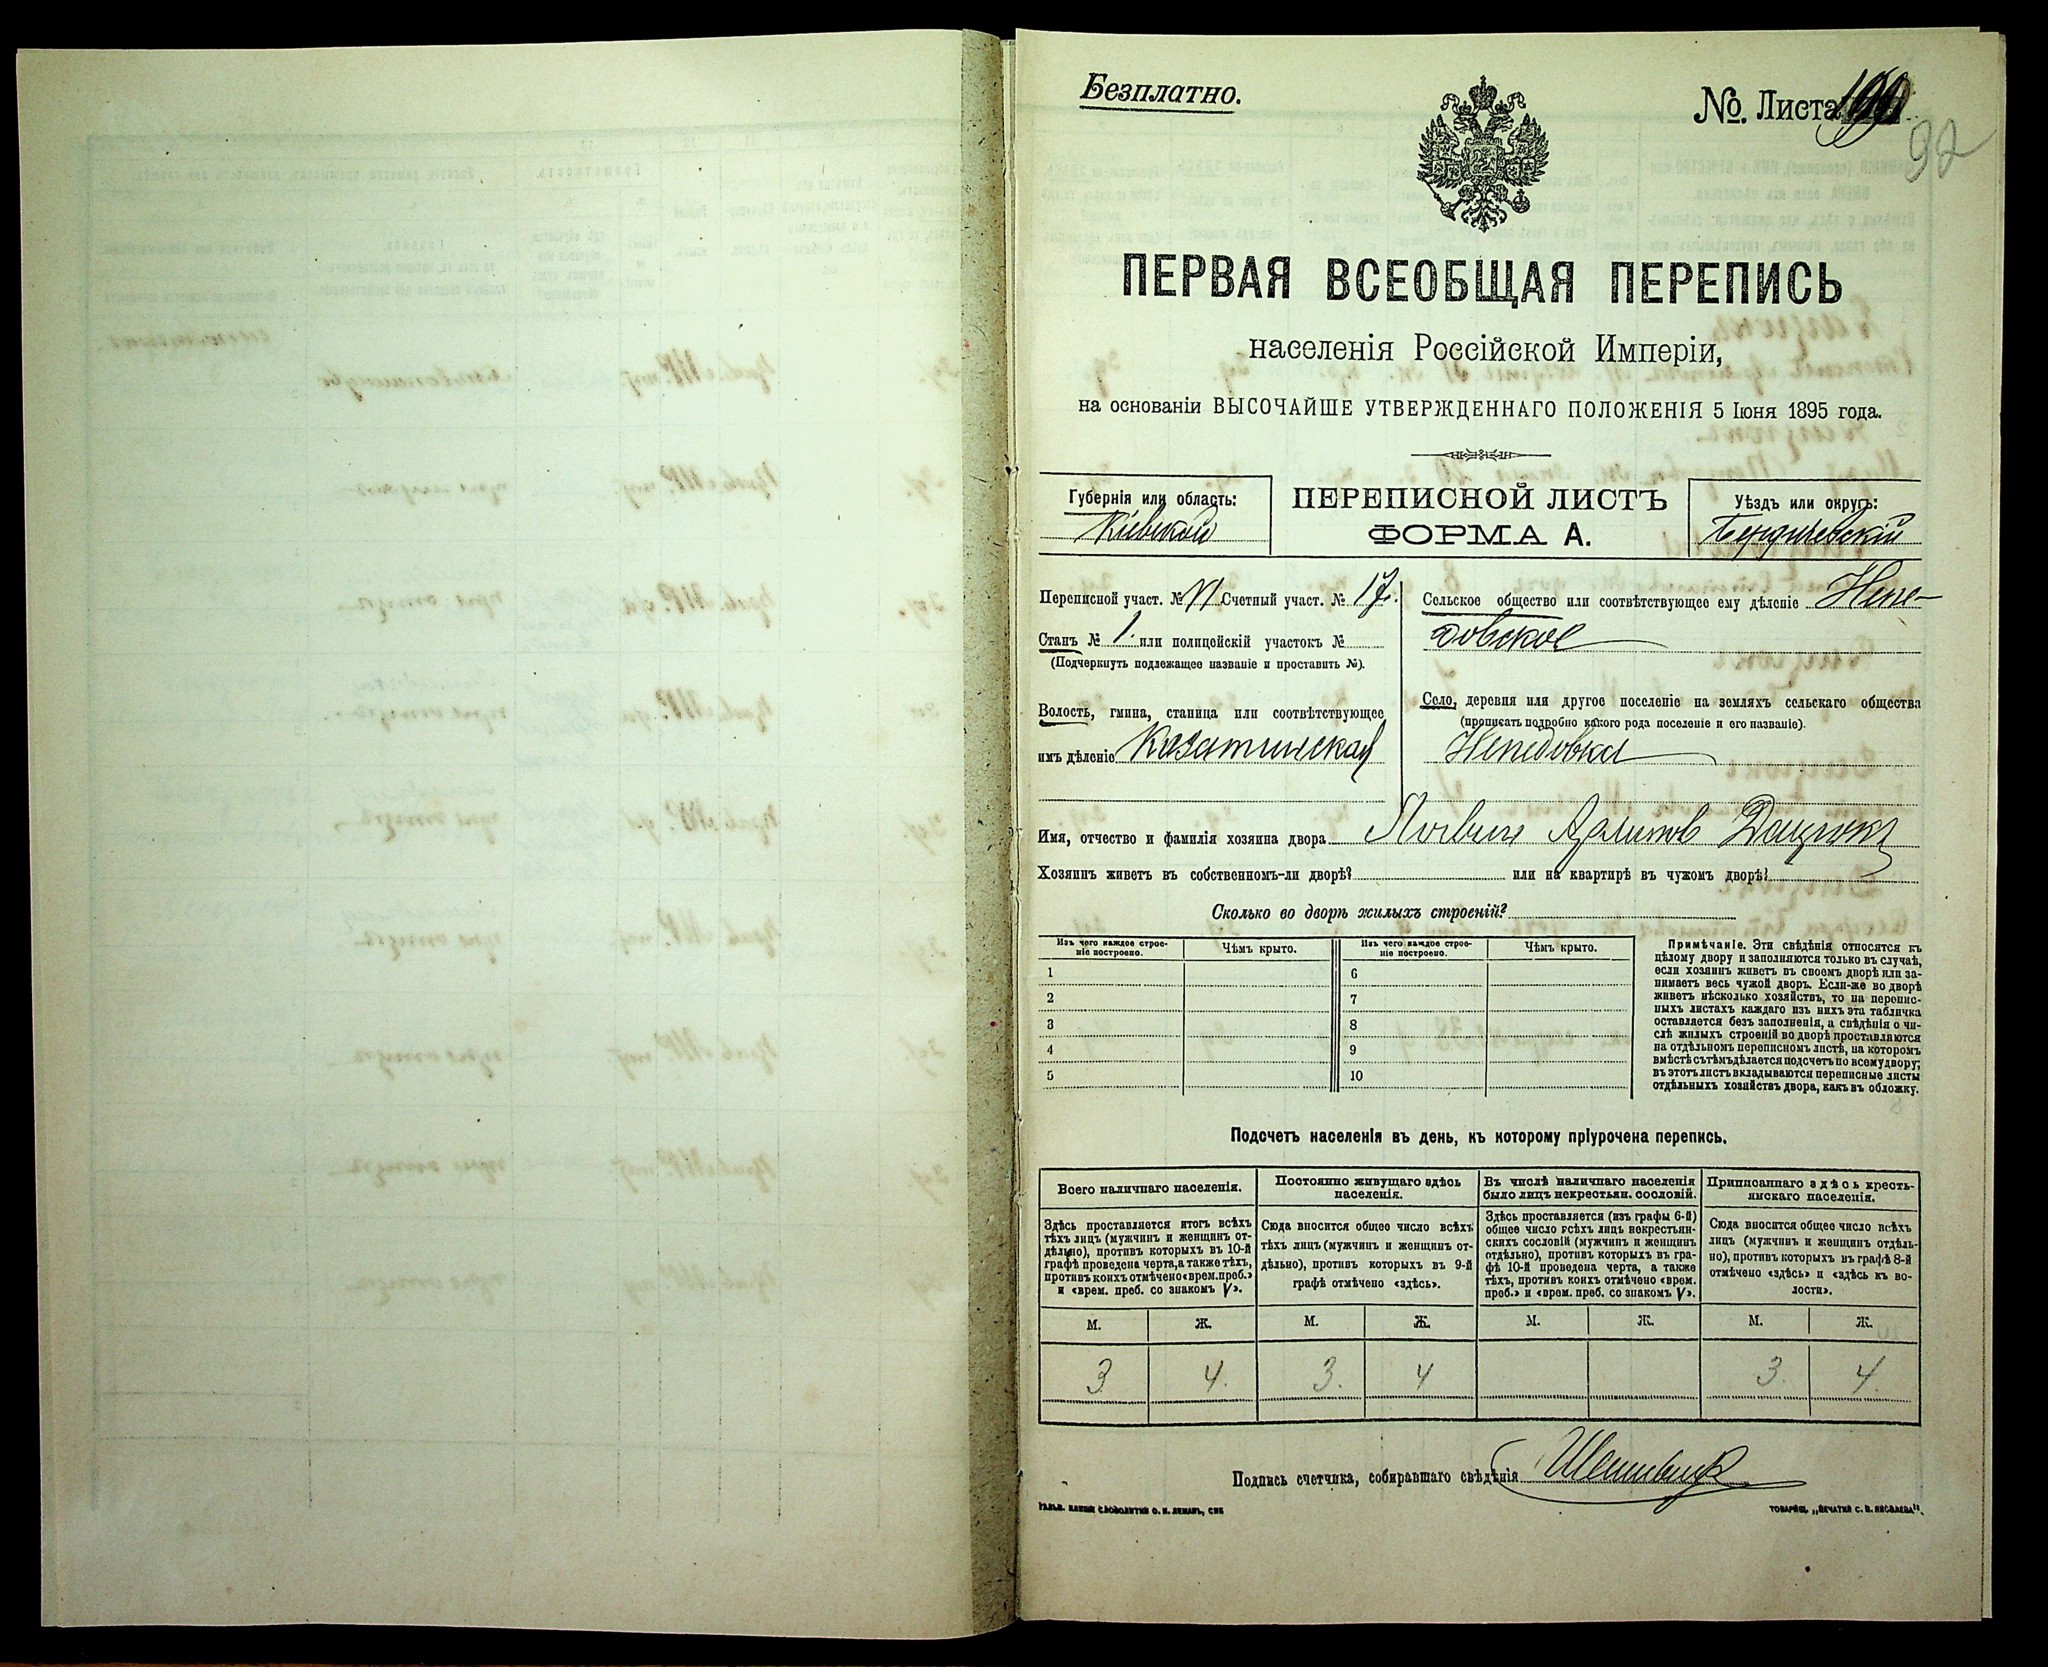 Безплатно.
№. Листа
92
ПЕРВАЯ ВСЕОБЩАЯ ПЕРЕПИСЬ
населенія Россійской Имперіи,
на основаніи ВЫСОЧАЙШЕ УТВЕРЖДЕННАГО ПОЛОЖЕНІЯ 5 Іюня 1895 года.
Губернія или область:
Кіевской
ПЕРЕПИСНОЙ ЛИСТЪ
ФОРМА А.
Уѣздъ или округъ:
Бердичевскій
Переписной участ. № Счетный участ. № 17.
Станъ № 1. или полицейскій участокъ №
(Подчеркнуть подлежащее названіе и проставить №).
Волость, гмина, станица или соотвѣтствующее
имъ дѣленіе Козатинская
Сельское общество или соотвѣтствующее ему дѣленіе Непе-
довское
Село, деревня или другое поселеніе на земляхъ сельскаго общества
(прописать подробно какого рода поселеніе и его названіе).
Непедовка
Имя, отчество и фамилія хозяина двора
Хозяинъ живетъ въ собственномъ-ли дворѣ? или на квартирѣ въ чужом дворѣ?
Сколько во дворѣ жилыхъ строеній?
Изъ чего каждое строе-
ніе построено.
Чѣмъ крыто.
Изъ чего каждое строе-
ніе построено.
Чѣмъ крыто.
1
2
3
4
5
6
7
8
9
10
Примѣчаніе. Эти свѣдѣнія относятся къ
цѣлому двору и заполняются только въ случаѣ,
если хозяинъ живетъ въ своемъ дворѣ или за-
нимаетъ весь чужой дворъ. Если-же во дворѣ
живетъ нѣсколько хозяйствъ, то на перепис-
ныхъ листахъ каждаго изъ нихъ эта табличка
оставляется безъ заполненія, а свѣдѣнія о чи-
слѣ жилыхъ строеній во дворѣ проставляются
на отдѣльномъ переписномъ листѣ, на которомъ
вмѣстѣ съ тѣмъ дѣлается подсчетъ по всему двору;
въ этотъ листъ вкладываются переписные листы
отдѣльныхъ хозяйствъ двора, какъ въ обложку.
Подсчетъ населенія въ день, къ которому пріурочена перепись.
Всего наличнаго населенія.
Здѣсь проставляется итогъ всѣхъ
тѣхъ лицъ (мужчинъ и женщинъ от-
дѣльно), противъ которыхъ въ 10-й
графѣ проведена черта, а также тѣхъ,
противъ коихъ отмѣчено «врем. преб.»
и «врем. преб. со знакомъ V».
Постоянно живущаго здѣсь
населенія.
Сюда вносится общее число всѣхъ
тѣхъ лицъ (мужчинъ и женщинъ от-
дѣльно), противъ которыхъ въ 9-й
графѣ отмѣчено «здѣсь».
Въ числѣ наличнаго населенія
было лицъ некрестьян. сословій.
Здѣсь проставляется (изъ графы 6-й)
общее число всѣхъ лицъ некрестьян-
скихъ сословій (мужчинъ и женщинъ
отдѣльно), противъ которыхъ въ гра-
фѣ 10-й проведена черта, а также
тѣхъ, противъ коихъ отмѣчено «врем.
преб.» и «врем. преб. со знакомъ V».
Приписаннаго здѣсь кресть-
янскаго населенія.
Сюда вносится общее число всѣхъ
лицъ (мужчинъ и женщинъ отдѣль-
но), противъ которыхъ въ графѣ 8-й
отмѣчено «здѣсь» и «здѣсь къ во-
лости».
М. Ж. М. Ж. М. Ж. М. Ж.
3 4. 3. 4 3. 4.
Подпись счетчика, собиравшаго свѣдѣнія
ТОВАРИЩ. „ПЕЧАТНЯ С. П. ЯКОВЛЕВА“.